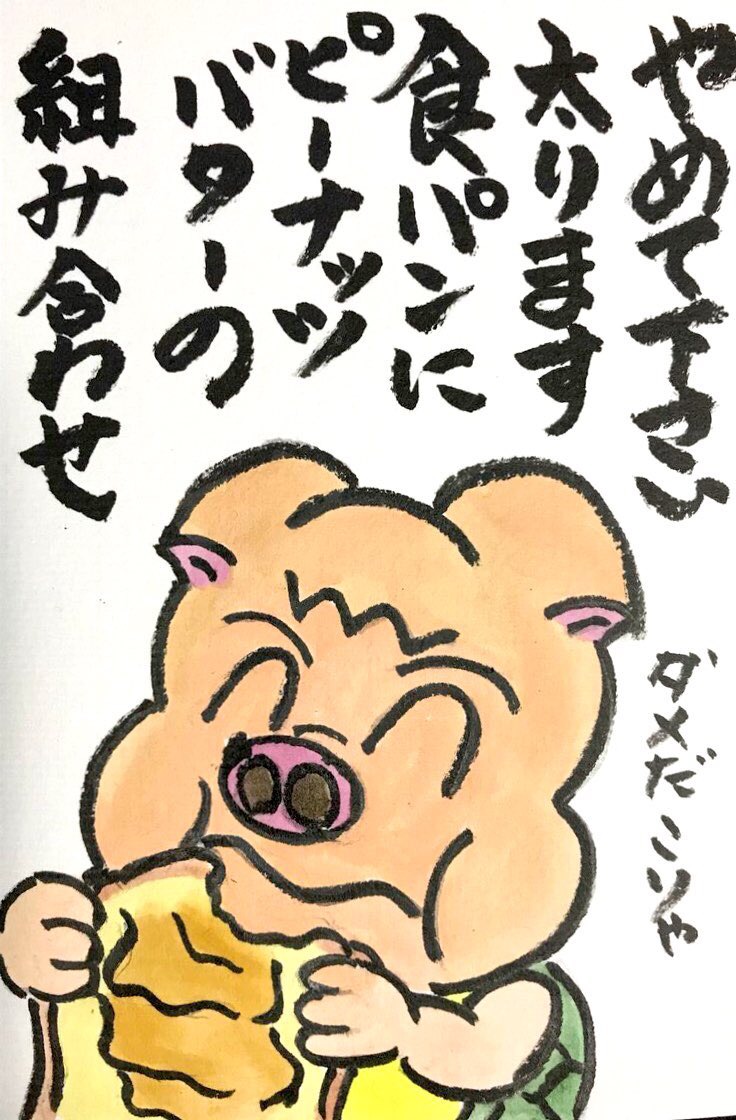 やめて下さい
太ります
食パンに
ピーナッツ
バターの
組み合わせ
ダメだこりゃ